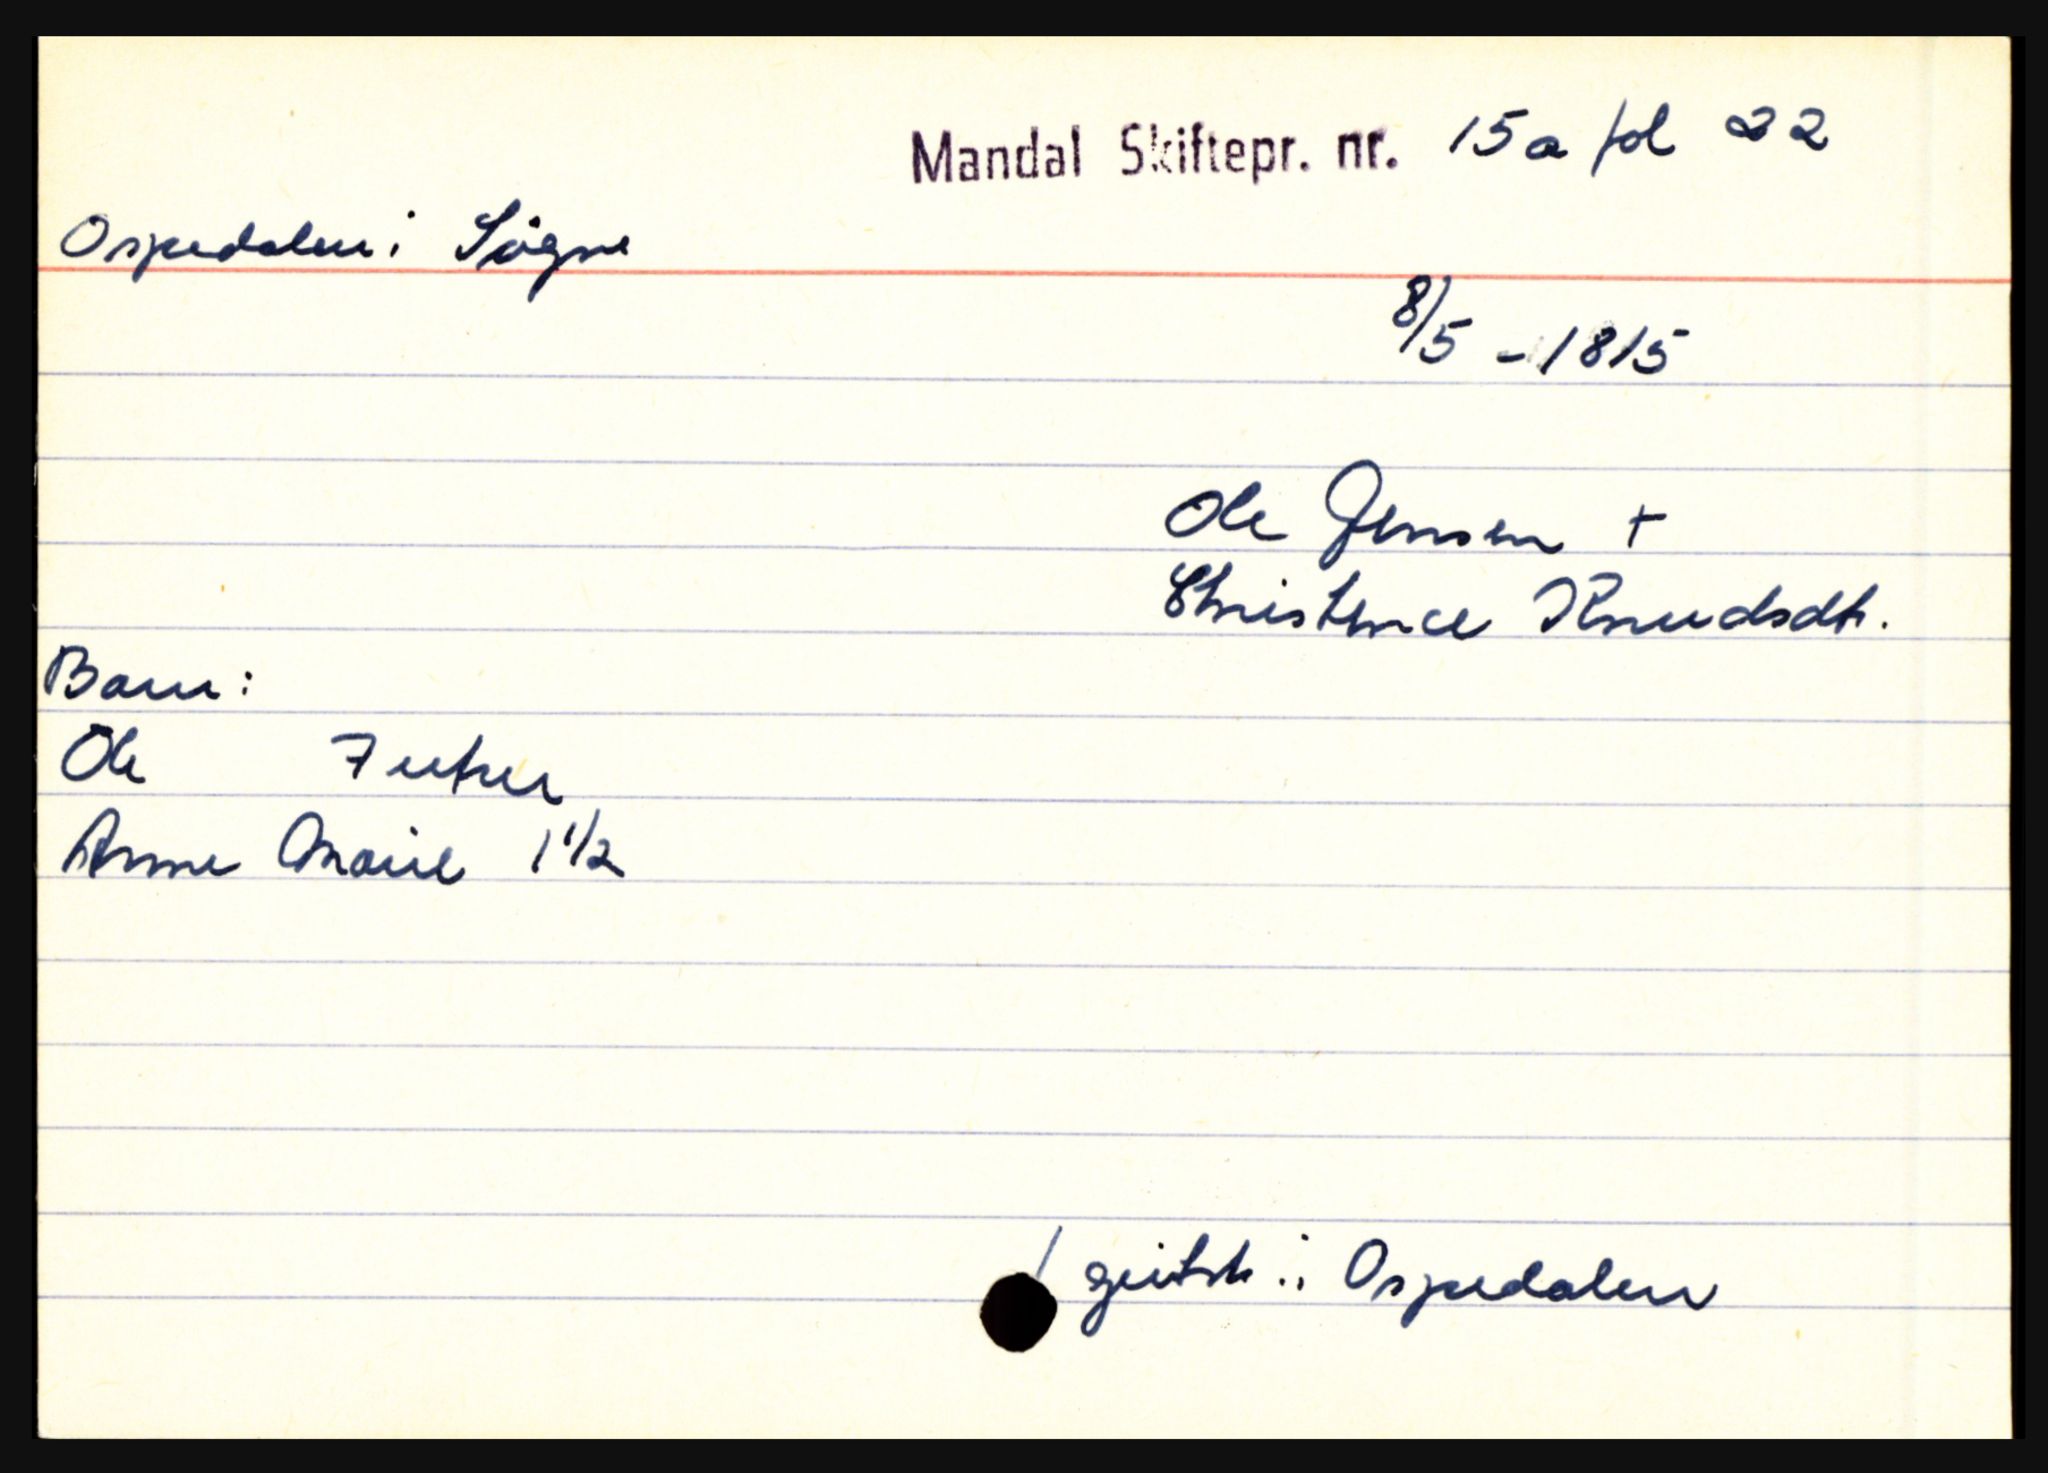 Mandal Skiftepr. nr. 15a fol 22
Ospedalen i Søgne
8/5 - 1815
Ole Jensen +
Christence Knudsdtr.
Barn:
Ole 7 uker
Anne Marie 1 1/2
/ geistr. i Ospedalen